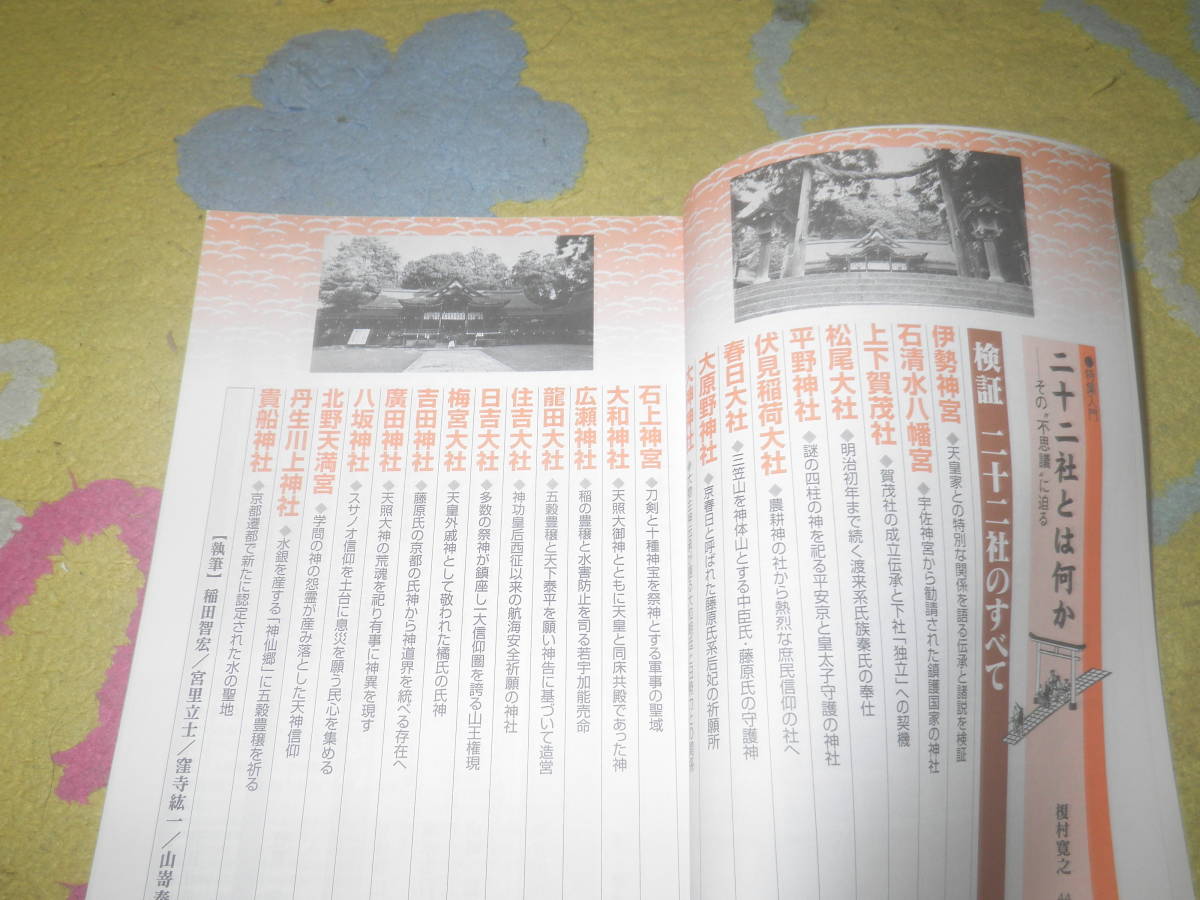 特集入門
二十二社とは何か
その“不思議”に迫る
榎村寛之
検証 二十二社のすべて
伊勢神宮 ◆天皇家との特別な関係を語る伝承と諸説を検証
石清水八幡宮 ◆宇佐神宮から勧請された鎮護国家の神社
上下賀茂社 ◆賀茂社の成立伝承と下社「独立」への契機
松尾大社 ◆明治初年まで続く渡来系氏族秦氏の奉仕
平野神社 ◆謎の四柱の神を祀る平安京と皇太子守護の神社
伏見稲荷大社 ◆農耕神の社から熱烈な庶民信仰の社へ
春日大社 ◆三笠山を神体山とする中臣氏・藤原氏の守護神
大原野神社 ◆京春日と呼ばれた藤原氏系后妃の祈願所
大神神社
石上神宮 ◆刀剣と十種神宝を祭神とする軍事の聖域
大和神社 ◆天照大御神とともに天皇と同床共殿であった神
広瀬神社 ◆稲の豊穣と水害防止を司る若宇加能売命
龍田大社 ◆五穀豊穣と天下泰平を願い神告に基づいて造営
住吉大社 ◆神功皇后西征以来の航海安全祈願の神社
日吉大社 ◆多数の祭神が鎮座し一大信仰圏を誇る山王権現
梅宮大社 ◆天皇外戚神として敬われた橘氏の氏神
吉田神社 ◆藤原氏の京都の氏神から神道界を統べる存在へ
廣田神社 ◆天照大神の荒魂を祀り有事に神異を現す
八坂神社 ◆スサノオ信仰を土台に息災を願う民心を集める
北野天満宮 ◆学問の神の怨霊が産み落とした天神信仰
丹生川上神社 ◆水銀を産する「神仙郷」に五穀豊穣を祈る
貴船神社 ◆京都遷都で新たに認定された水の聖地
【執筆】稲田智宏／宮里立士／窪寺紘一／山嵜泰